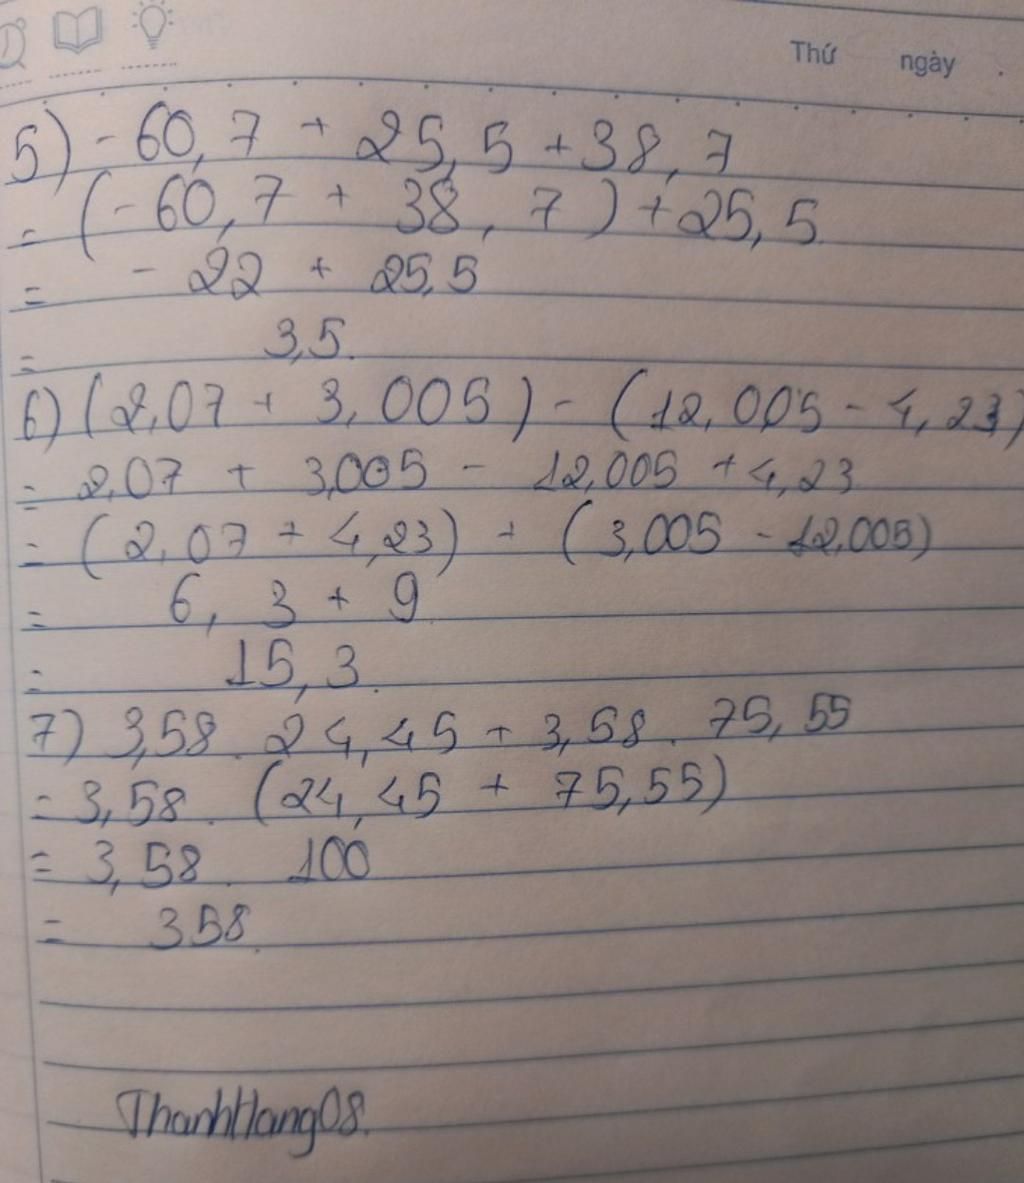 Thứ ngày .
5) - 60,7 + 25,5 + 38,7
= (- 60,7 + 38,7) + 25,5
= - 22 + 25,5
= 3,5.
6) (2,07 + 3,005) - (12,005 - 4,23)
= 2,07 + 3,005 - 12,005 + 4,23
= (2,07 + 4,23) + (3,005 - 12,005)
= 6,3 + 9
= 15,3.
7) 3,58 . 24,45 + 3,58 . 75,55
= 3,58 . (24,45 + 75,55)
= 3,58 . 100
= 358.
ThanhHang08.